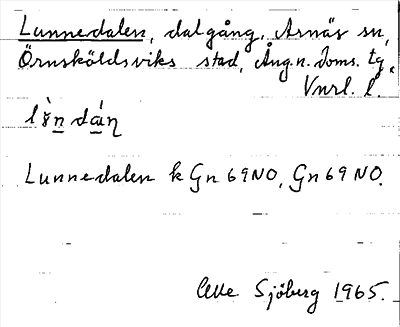 Lunnedalen, dalgång, Arnäs sn,
Örnsköldsviks stad, Ång.n. doms. tg.
Vnrl. l.
dán
Lunnedalen k Gn 69 NO, Gn 69 NO.
Olle Sjöberg 1965.